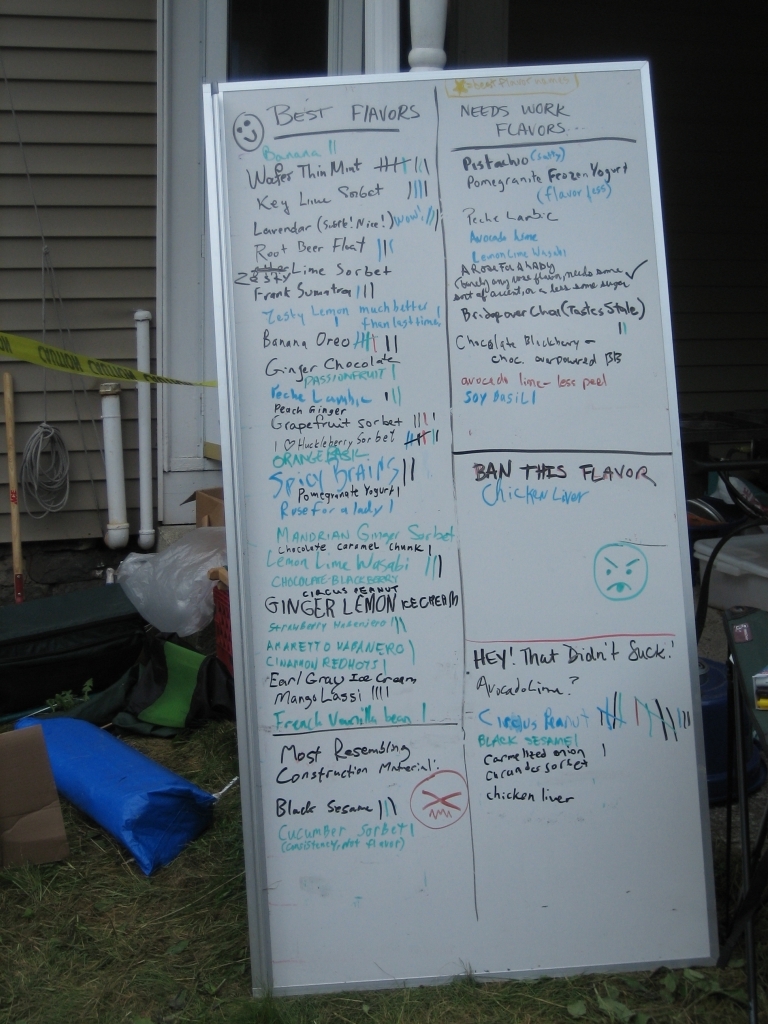 BEST FLAVORS
Banana ||
Wafer Thin Mint
Key Lime Sorbet ||||
Lavendar (Subtle! Nice!) Wow!
Root Beer Float |||
Zesty Lime Sorbet
Frank Sumatra |||
Zesty Lemon much better
than last time
Banana Oreo
Ginger Chocolate
PASSIONFRUIT |
Peche Lambic |||
Peach Ginger
Grapefruit sorbet
I ♡ Huckleberry Sorbet
ORANGE BASIL
SPICY BRAINS ||
Pomegranate Yogurt |
Rose for a lady |
MANDRIAN Ginger Sorbet
Chocolate caramel chunk |
Lemon Lime Wasabi |||
CHOCOLATE BLACKBERRY
CIRCUS PEANUT
GINGER LEMON ICE CREAM
Strawberry Habanero
AMARETTO HABANERO
CINNAMON REDHOTS |
Earl Gray Ice Cream
Mango Lassi ||||
French Vanilla bean |
Most Resembling
Construction Material:
Black Sesame |||
CUCUMBER SORBET |
(consistency, not flavor)
NEEDS WORK
FLAVORS...
Pistachio (salty)
Pomegranite Frozen Yogurt
(flavorless)
Peche Lambic
Avocado Lime
Lemon Lime Wasabi
A ROSE FOR A LADY
(barely any rose flavor, needs some
sort of accent, or a less some sugar
Bridgeover Choc (Tastes Stale)
Chocolate Blackberry -
choc. overpowered BB
avocado lime - less peel
SOY BASIL |
BAN THIS FLAVOR
Chicken Liver
HEY! That Didn't Suck!
Avocado Lime?
Circus Peanut
BLACK SESAME |
carmelized onion |
coriander sorbet
chicken liver
CAUTION CAUTION